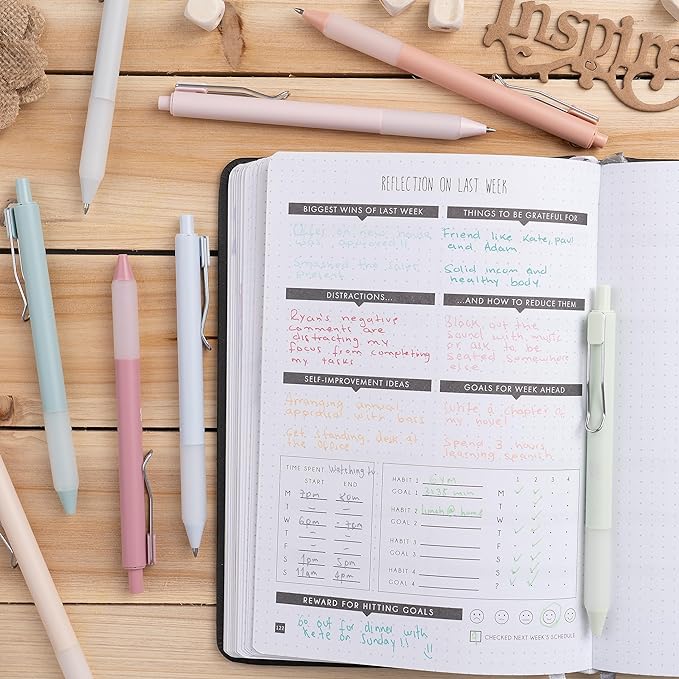 Inspire
REFLECTION ON LAST WEEK
BIGGEST WINS OF LAST WEEK
Offer on new house
was approved!!
Smashed the sales
THINGS TO BE GRATEFUL FOR
Friend like Kate, paul
and Adam.
Solid incom and
healthy body.
DISTRACTIONS...
Ryan's negative
comments are
distracting my
focus from completing
my tasks
...AND HOW TO REDUCE THEM
Block out the
sound with music
or ask to be
seated somewhere
else.
SELF-IMPROVEMENT IDEAS
Arranging annual
appraisal with boss
Get standing desk at
the office
GOALS FOR WEEK AHEAD
Write a chapter of
my novel
Spend 3 hours
learning spanish
TIME SPENT Watching tv
START END
M 7pm 8pm
T — —
W 6pm - 7pm
T — —
F — —
S 1pm 5pm
S 11am 4pm
HABIT 1 Gym
GOAL 1 min
HABIT 2 lunch @ home
GOAL 2
HABIT 3
GOAL 3
HABIT 4
GOAL 4
1 2 3 4
M
T
W
T
F
S
S
?
REWARD FOR HITTING GOALS
Go out for dinner with
Kate on Sunday!!
CHECKED NEXT WEEK'S SCHEDULE
127